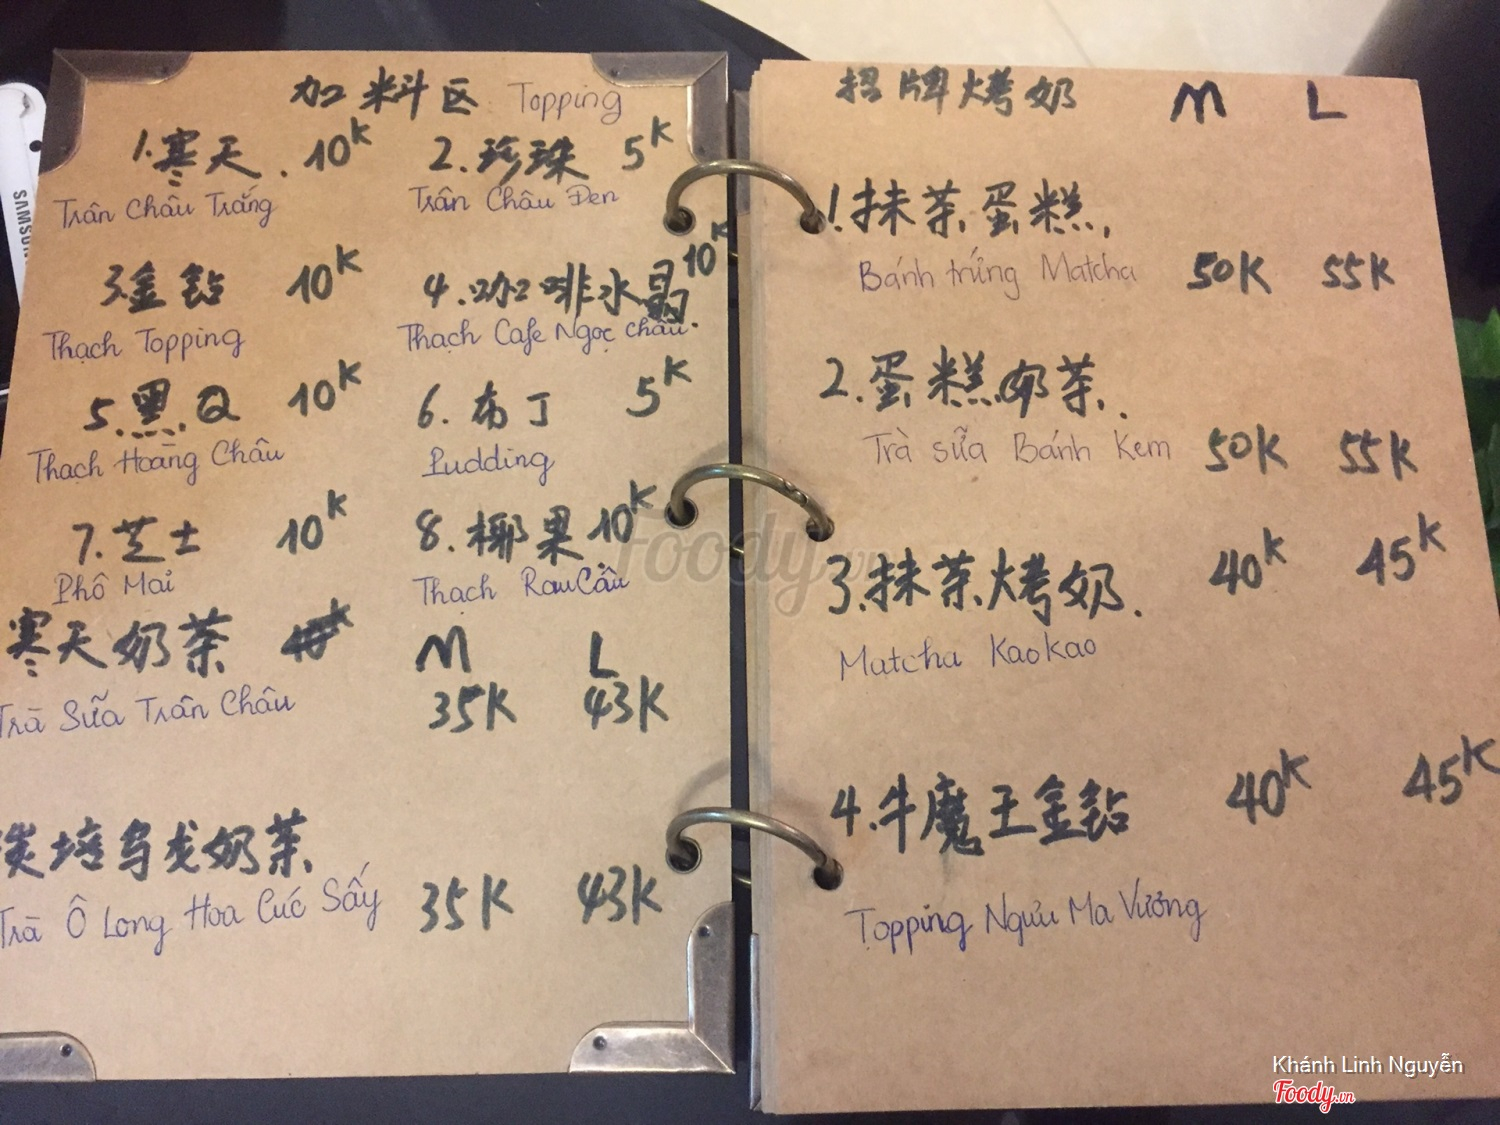 加料区 Topping
1.寒天. 10K 2.珍珠 5K
Trân Châu Trắng Trân Châu Đen
3.金钻 10K 4.咖啡水晶 10K
Thạch Topping Thạch Cafe Ngọc Châu.
5.黑.Q 10K 6.布丁 5K
Thạch Hoàng Châu Pudding
7.芝士 10K 8.椰果 10K
Phô Mai Thạch Rau Câu
寒天奶茶 M L
Trà Sữa Trân Châu 35K 43K
炭培乌龙奶茶
Trà Ô Long Hoa Cúc Sấy 35K 43K
招牌烤奶 M L
1.抹茶蛋糕.
Bánh trứng Matcha 50K 55K
2.蛋糕奶茶.
Trà sữa Bánh Kem 50K 55K
3.抹茶烤奶. 40K 45K
Matcha KaoKao
4.牛魔王金钻 40K 45K
Topping Ngưu Ma Vương
SAMSUN
Foody.vn
Khánh Linh Nguyễn
Foody.vn